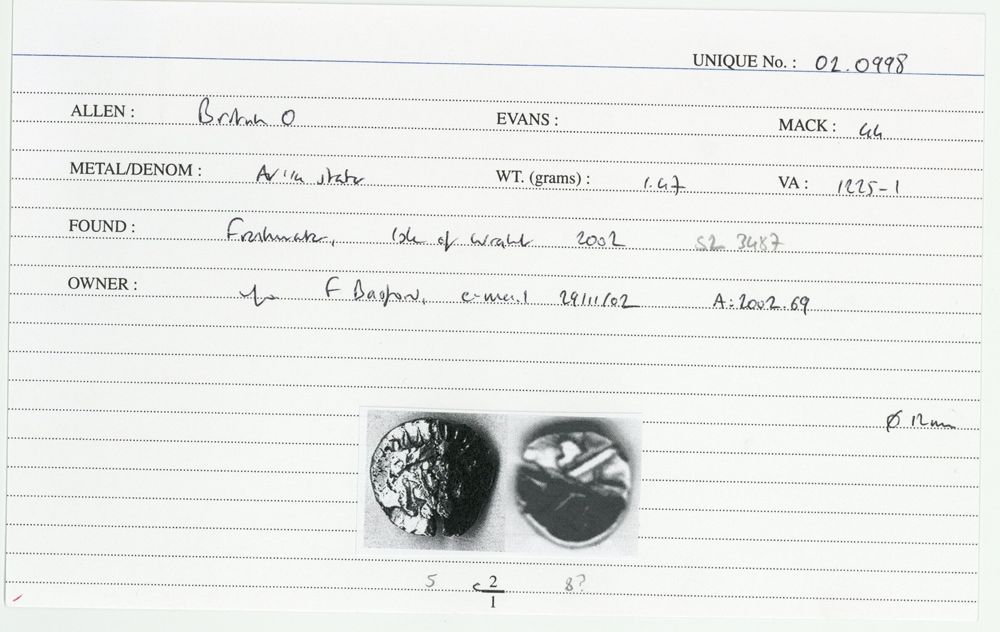 UNIQUE No. : 02.0998
ALLEN : British O EVANS : MACK : 44
METAL/DENOM : AV 1/4 stater WT. (grams) : 1.47 VA : 1225-1
FOUND : Freshwater, Isle of Wight 2002 SZ 3487
OWNER : F Basford, e-mail 29/11/02 A: 2002.69
Ø 12mm
5 c 2/1 8?